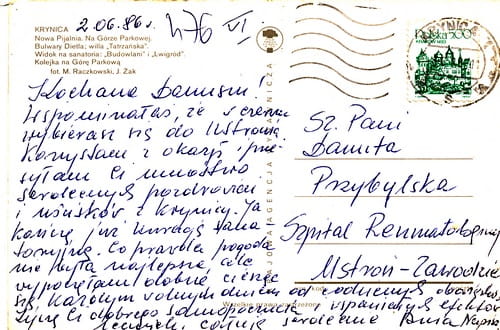 KRYNICA
2.06.86r.
476 VI
Nowa Pijalnia. Na Górze Parkowej.
Bulwary Dietla; willa „Tatrzańska”.
Widok na sanatoria: „Budowlani” i „Lwigród”.
Kolejka na Górę Parkową
fot. M. Raczkowski, J. Żak
Kochana Danusiu!
Wspominałaś, że w czerwcu
wybierasz się do Ustronia
Korzystam z okazji i prze-
syłam Ci mnóstwo
serdecznych pozdrowień
i uścisków z Krynicy. Ja
kończę już kurację sana-
toryjną. Co prawda pogoda
nie była najlepsza, ale
wypoczęłam dobrze ciesząc
się każdym wolnym dniem od codziennych obowiązków.
Życzę Ci dobrego samopoczucia i wspaniałych efektów
całuję serdecznie
KRYNICA
Polska 200
Sz. Pani
Danuta
Przybylska
Szpital Reumatologiczny
Ustroń-Zawodzie
KRAJOWA AGENCJA WYDAWNICZA
Wszelkie prawa zastrzeżone